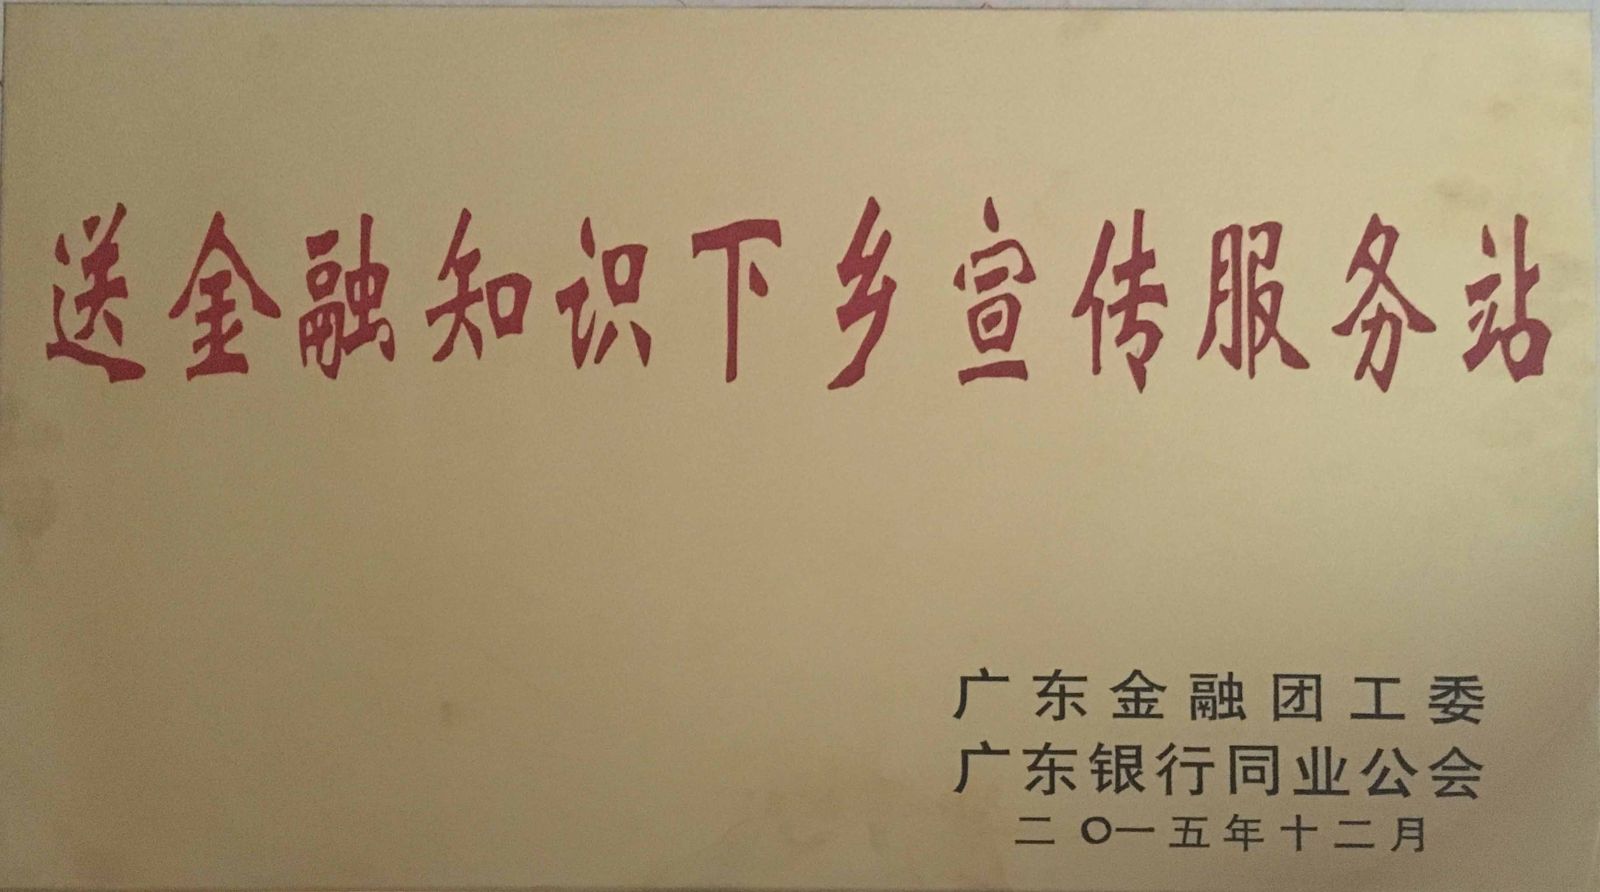 送金融知识下乡宣传服务站
广东金融团工委
广东银行同业公会
二〇一五年十二月